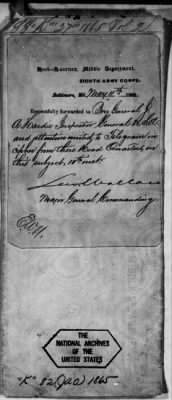 Head-Quarters, Middle Department,
EIGHTH ARMY CORPS.
Baltimore, Md., May 11th 1865.
Respectfully forwarded to Brig General J
A Hardie Inspector General U.S.A.
and attention invited to Telegram in
cipher from these Head Quarters, on
this subject, 10th inst.
Lew Wallace
Major General Commanding.
THE
NATIONAL ARCHIVES
OF THE
UNITED STATES
"K" 82 (JAO) 1865